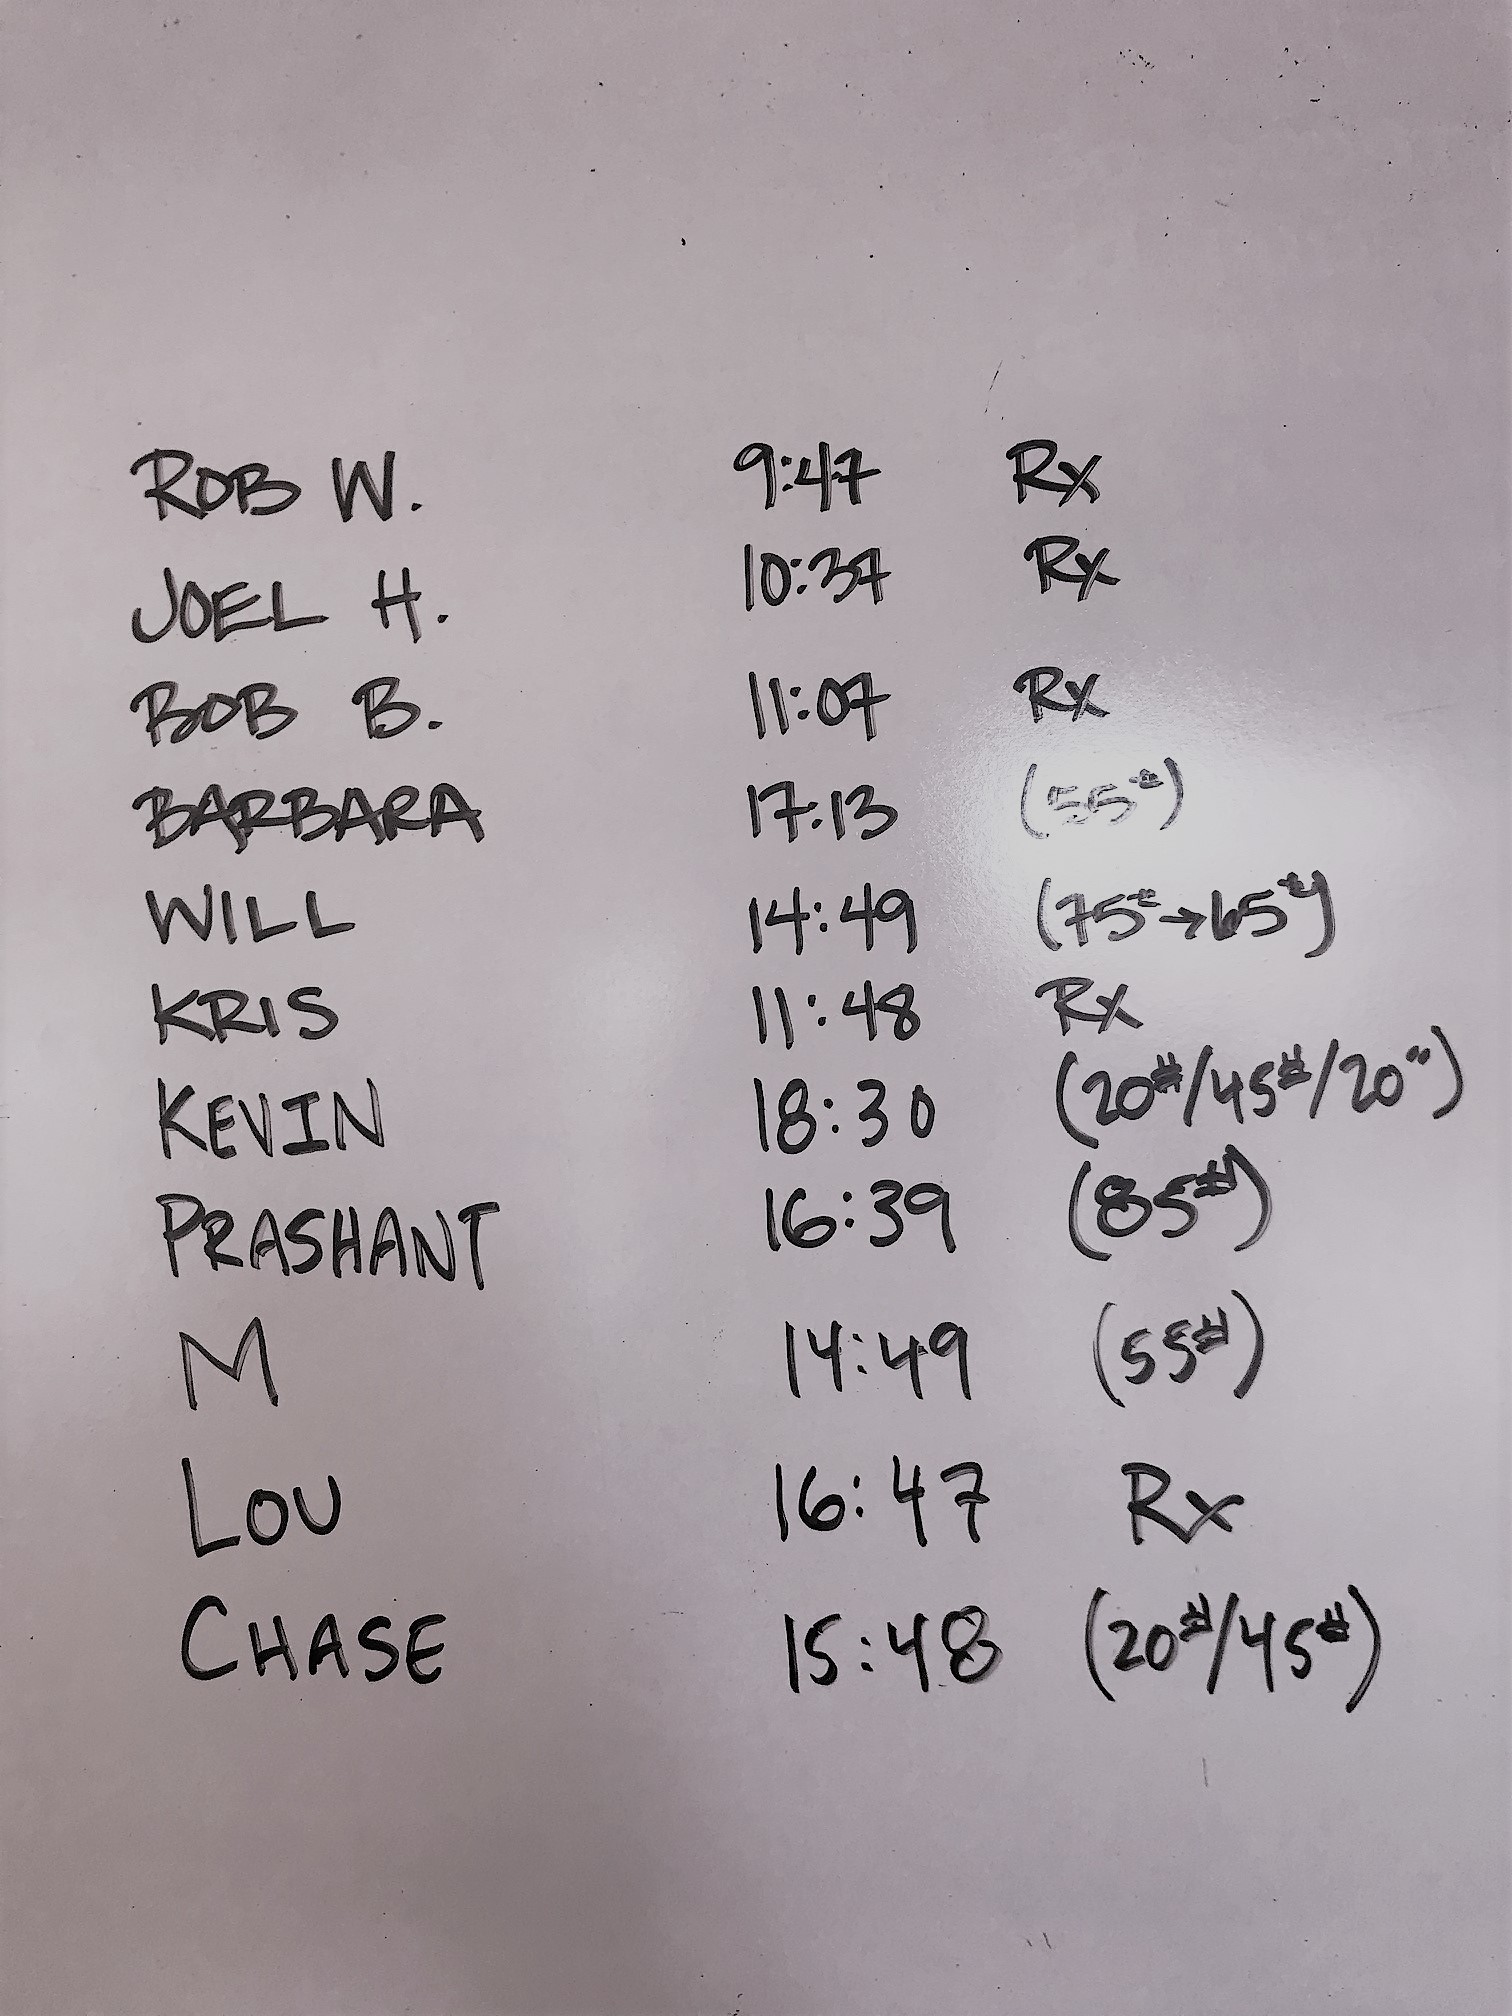 ROB W. 9:47 Rx
JOEL H. 10:37 Rx
BOB B. 11:07 Rx
BARBARA 17:13 (55#)
WILL 14:49 (75#→65#)
KRIS 11:48 Rx
KEVIN 18:30 (20#/45#/20")
PRASHANT 16:39 (85#)
M 14:49 (55#)
LOU 16:47 Rx
CHASE 15:48 (20#/45#)